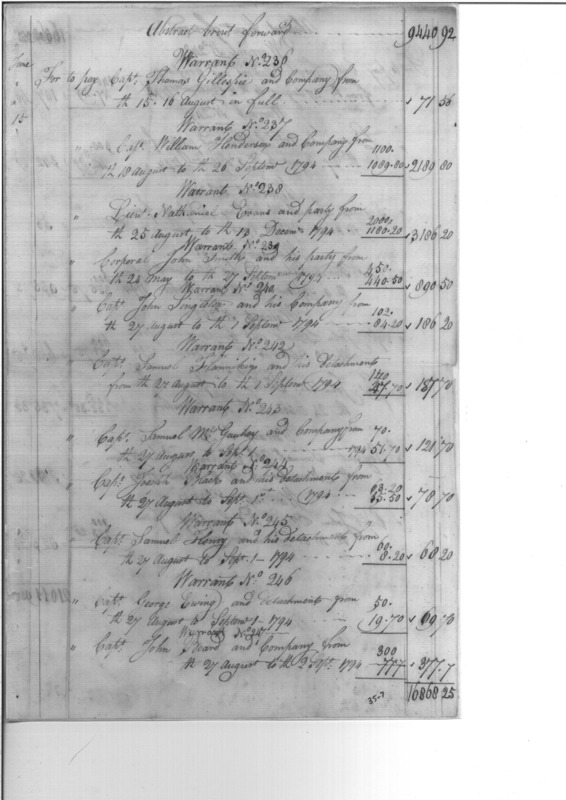 Abstract brout forward 9440 92
Warrant No. 236
June For to pay Capt. Thomas Gillespie and Company from
15 th 15. 16 August in full 71 56
Warrant No. 237
" Capt. William Henderson and Company from 1100.
th 18 August to th 26 Septemr 1794 1089.80 2189 80
Warrant No. 238
" Lieut. Nathaniel Evans and party from 2000
th 25 August to th 13 Decemr. 1794 1186.20 3186 20
Warrant No. 239
" Corporal John Smith and his party from 450.
th 24 May to th 27 Septemr 1794 440.50 890 50
Warrant No. 240
" Capt. John Singleton and his Company from 102.
th 27 August to th 1 Septemr 1794 84.20 186 20
Warrant No. 242
Capt. Samuel and his detachments 140
from th 27 August to th 1 Septemr 1794 47.70 187 70
Warrant No. 243
" Capt. Samuel Mc and Company from 70.
th 27 August to Sept. 1 1794 51.70 121 70
Warrant No. 244
" Capt. and his detachments from
th 27 August to Sept. 1st 1794 78 70
Warrant No. 245
Capt. Samuel Henry and his detachments from 60.
th 27 August to Sept. 1 - 1794 8.20 68 20
Warrant No. 246
" Capt. George Ewing and detachments from 50.
th 27 August to Septemr 1 - 1794 19.70 69 70
Warrant No. 247
" Capt. John Beard and Company from 300
th 27 August to th 2 Sept. 1794 777 377.7
35.7 16868 25